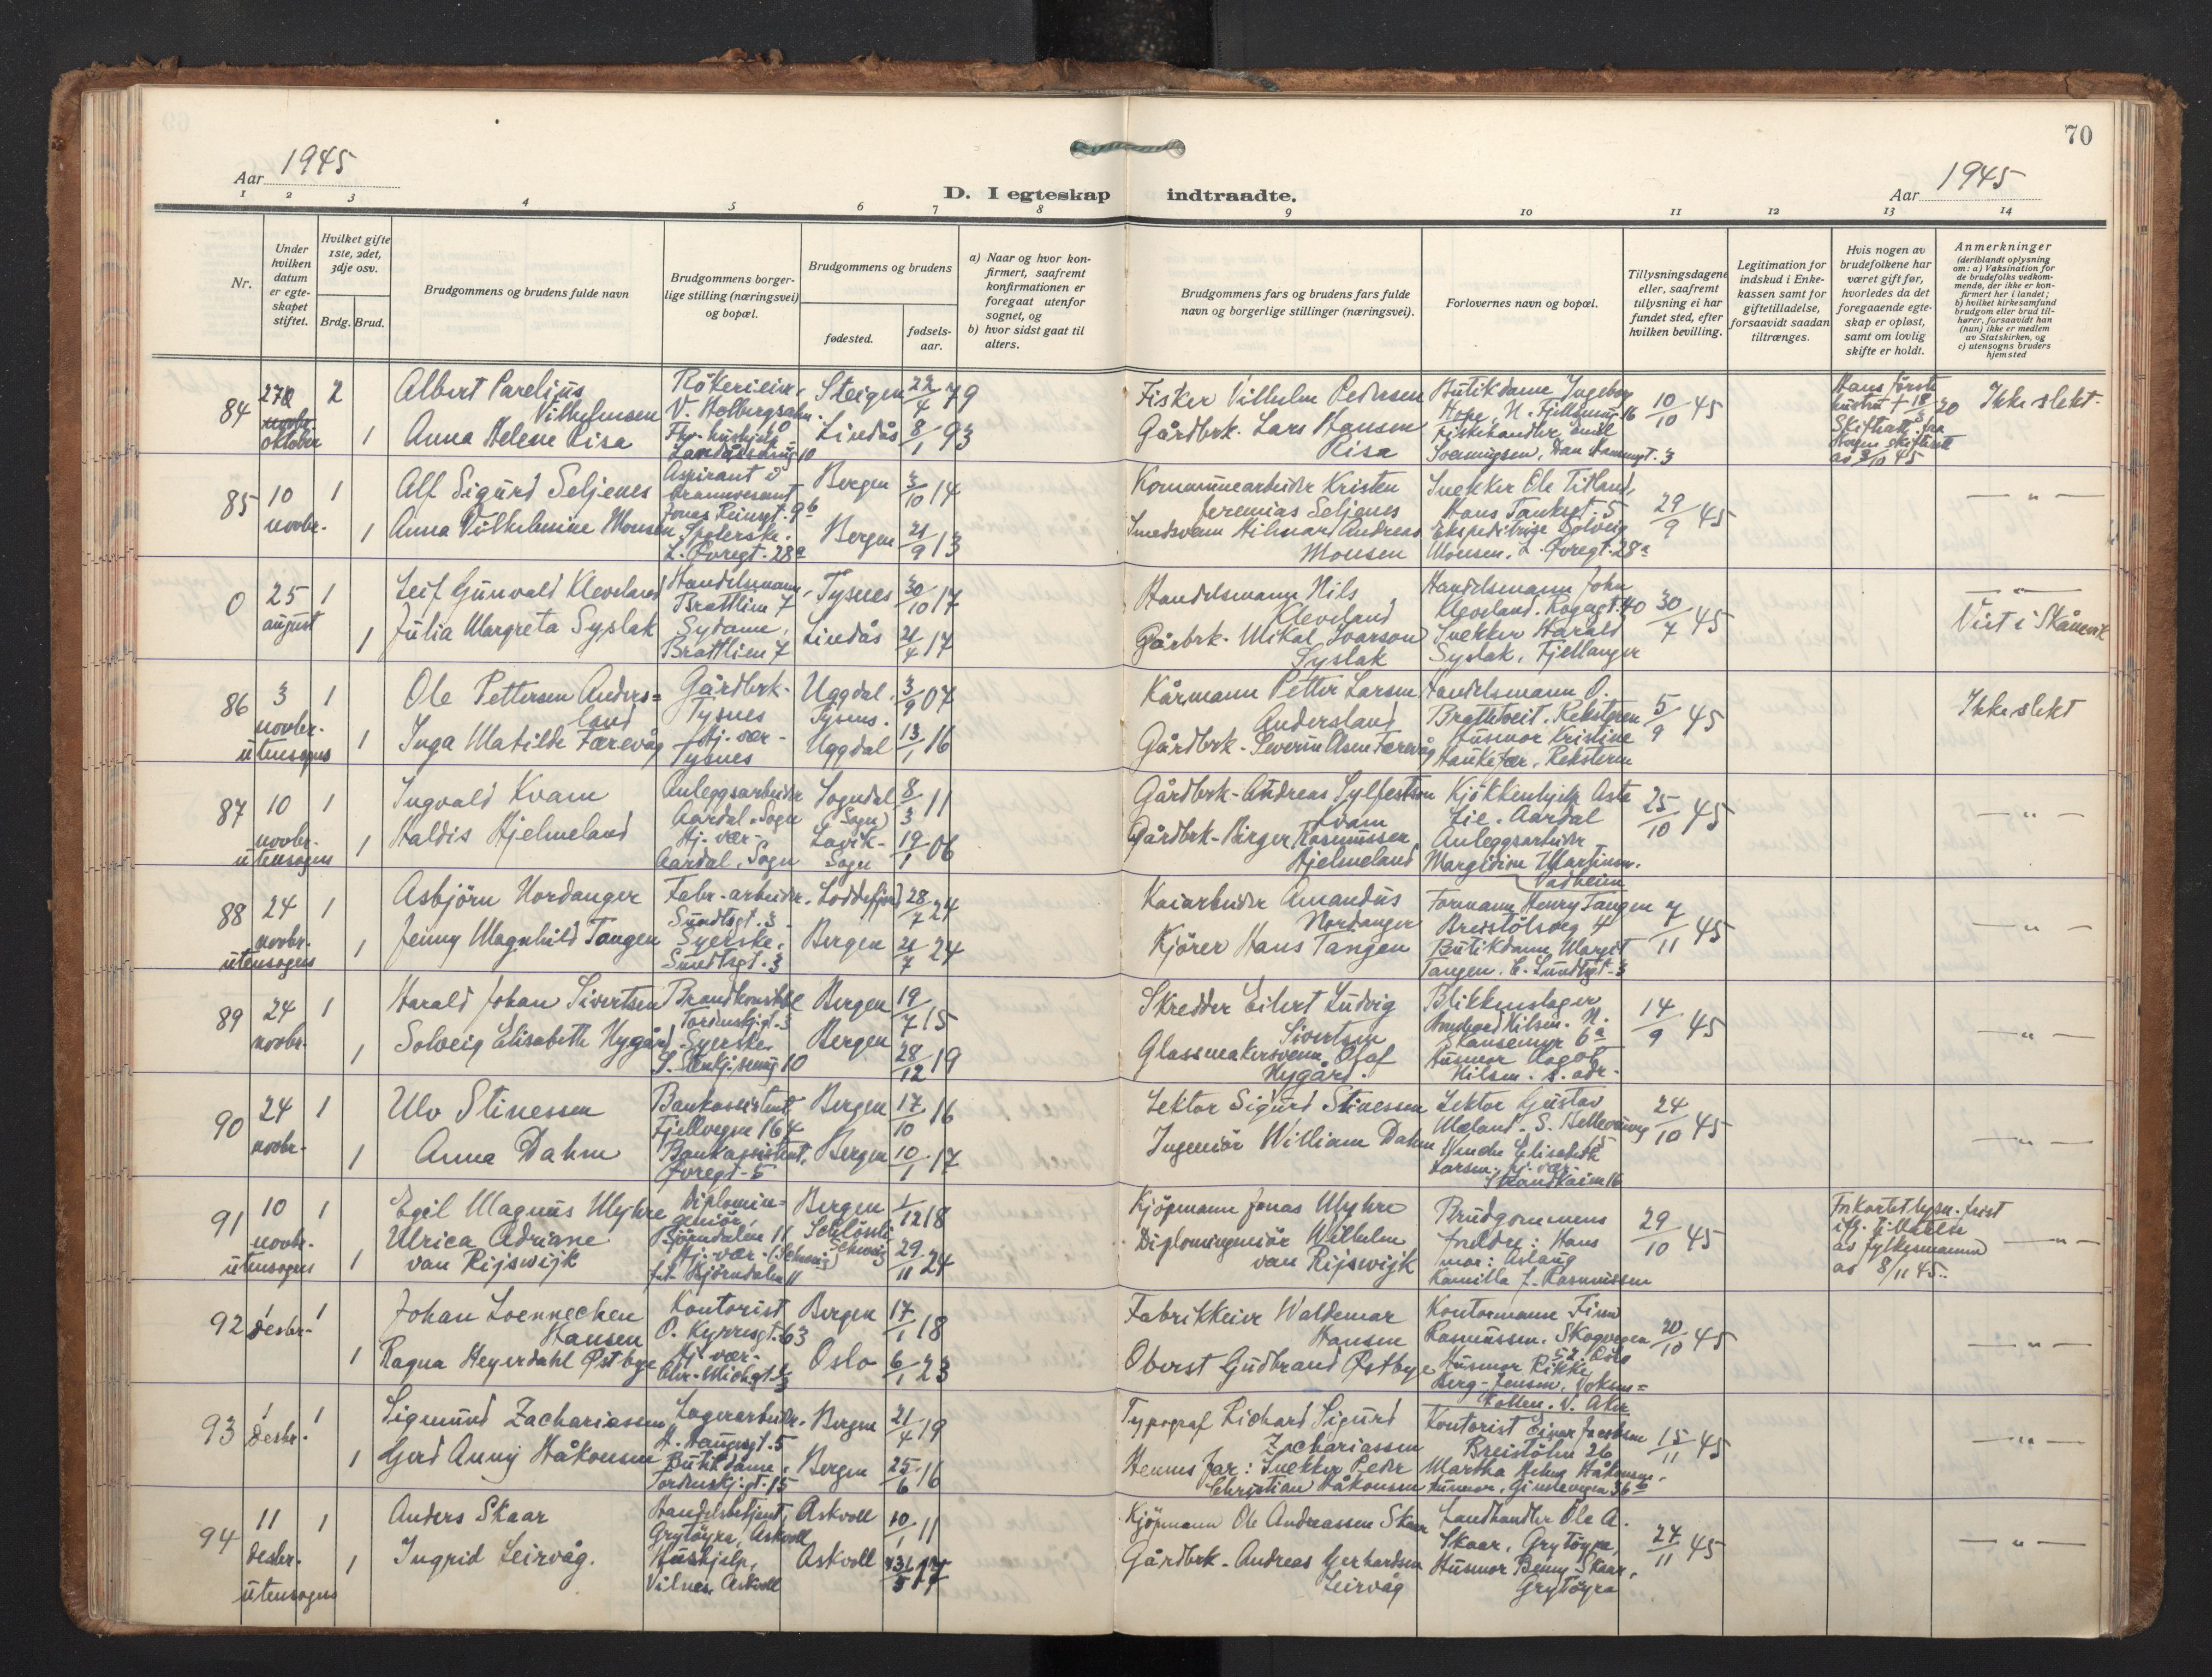 70
Aar 1945
Aar 1945
D. I egteskap indtraadte.
1 2 3 4 5 6 7 8 9 10 11 12 13 14
Nr.
Under hvilken datum er egte-skapet stiftet.
Hvilket gifte 1ste, 2det, 3dje osv.
Brdg. Brud.
Brudgommens og brudens fulde navn
Brudgommens borger-
lige stilling (næringsvei)
og bopæl.
Brudgommens og brudens
fødested.
fødsels-
aar.
a) Naar og hvor kon-
firmert, saafremt
konfirmationen er
foregaat utenfor
sognet, og
b) hvor sidst gaat til
alters.
Brudgommens fars og brudens fars fulde
navn og borgerlige stillinger (næringsvei).
Forlovernes navn og bopæl.
Tillysningsdagene
eller, saafremt
tillysning ei har
fundet sted, efter
hvilken bevilling.
Legitimation for
indskud i Enke-
kassen samt for
giftetilladelse,
forsaavidt saadan
tiltrænges.
Hvis nogen av
brudefolkene har
været gift før,
hvorledes da det
foregaaende egte-
skap er opløst,
samt om lovlig
skifte er holdt.
Anmerkninger
(deriblandt oplysning
om: a) Vaksination for
de brudefolks vedkom-
mende, der ikke er kon-
firmert her i landet;
b) hvilket kirkesamfund
brudgom eller brud til-
hører, forsaavidt han
(hun) ikke er medlem
av Statskirken, og
c) utensogns bruders
hjemsted
84 27 oktober 2 Albert Parelius Vilhelmsen Steigen 22/4 79
Fisker Vilhelm Pedersen Butikdame Ingeborg Hope, N. Fjellsmug 16 10/10 45 Ikke slekt
1 Anna Helene Risa Lindås 8/1 93
Gårdbrk. Lars Hansen Risa
Hans første hustru + 18/3 20
85 10 novbr. 1 Alf Sigurd Seljenes Aspirant i Brannvesenet Bergen 3/10 14
Kommunearbeider Kristen Jeremias Seljenes Snekker Ole Titland, Hans Tanksgt. 5 29/9 45 — " —
1 Anna Vilhelmine Monsen L. Øvregt. 28a Bergen 21/9 13
Smedsvenn Hilmar Andreas Monsen Ekspeditrise Solveig Monsen, L. Øvregt. 28a
0 25 august 1 Leif Gunvald Kleveland Handelsmann, Brattlien 7 Tysnes 30/10 17
Handelsmann Nils Kleveland Handelsmann John Kleveland. 30/7 45 — " —
Viet i Skånevik
1 Julia Margreta Syslak Sydame, Brattlien 7 Lindås 21/4 17
Gårbrk. Mikal Ivarson Syslak Snekker Harald Syslak, Fjellanger
86 3 novbr. utensogns 1 Ole Pettersen Andersland Gårdbrk. Tysnes Uggdal. Tysnes. 3/9 07
Kårmann Petter Larsen Andersland Handelsmann O. 5/9 45 Ikke slekt
1 Inga Matilde Færevåg Hj. vær. Tysnes Uggdal 13/1 16
Gårdbrk. Severin Olsen Færevåg Husmor Kristine Haukefær, Reksteren
87 10 novbr. utensogns 1 Ingvald Kvam Anleggsarbeider Aardal, Sogn Sogndal (Sogn) 8/3 11
Gårdbrk. Andreas Sylfestson Kvam Kjøkkenhjelp Asta Lie. Aardal 25/10 45 — " —
1 Haldis Hjelmeland Hj. vær. Aardal, Sogn Lavik Sogn 19/1 06
Gårdbrk. Birger Rasmussen Hjelmeland Anleggsarbeider Vadheim
88 24 novbr. utensogns 1 Asbjörn Nordanger Fabr. arbeider. Sundtsgt. 3 Loddefjord 28/7 24
Kaiarbeider Amandus Nordanger Formann Henry Tangen 7/11 45 — " —
1 Jenny Magnhild Tangen Syerske. Sundtsgt. 3 Bergen 21/7 24
Kjörer Hans Tangen Butikdame Margit Tangen. C. Sundtsgt. 3
89 24 novbr. 1 Harald Johan Sivertsen Brandkonstabel Tordenskj.gt. 3 Bergen 19/7 15
Skredder Eilert Ludvig Sivertsen Blikkenslager 14/9 45 — " —
1 Solveig Elisabeth Nygård Syerske. Bergen 28/12 19
Glassmakersvenn Olaf Nygård. Husmor Aagot Nilsen. s. adr.
90 24 novbr. 1 Ulv Stinessen Bankassistent Fjellvegen 164 Bergen 17/10 16
Lektor Sigurd Stinessen Lektor Gustav Mæland. 24/10 45 — " —
1 Anna Dahm Bankassistent, Øvregt. 5 Bergen 10/1 17
Ingeniör William Dahm Wenche Elisabeth Larsen. hj. vær. Strandkaien 16
91 10 novbr. utensogns 1 Egil Magnus Myhre Diplomingeniör, Björndalen 11 Bergen 1/12 18
Kjöpmann Jonas Myhre Brudgommens foreldre: Hans mor: Aslaug Kamilla J. Rasmussen 29/10 45 — " —
1 Ulrica Adrianne van Rijswijk Hj. vær. Björndalen 11 29/11 24
Diplomingeniör Wilhelm van Rijswijk
av fylkesmannen av 8/11 45.
92 1 desbr. 1 Johan Loennechen Hansen Kontorist O. Kyrresgt. 63 Bergen 17/1 18
Fabrikkeier Waldemar Hansen Kontormann Finn Rasmussen. Skogvegen Oslo 20/10 45 — " —
1 Ragna Heyerdahl Østbye Hj. vær. Oslo 6/1 23
Oberst Gudbrand Østbye Husmor Rikke Berg-Jensen, Voksenkollen. V. Aker.
93 1 desbr. 1 Sigmund Zachariassen Lagerarbeider. H. Haugesgt. 5 Bergen 21/4 19
Typograf Richard Sigurd Zachariassen Kontorist Einar Jacobsen Breistölen 26 15/11 45 — " —
1 Gerd Anny Håkonsen Butikdame, Tordenskj.gt. 15 Bergen 25/6 16
Hennes far: Snekker Peder Christian Håkonsen Martha Helene Håkonsen, husmor, Gimlevegen 36b
94 11 desbr. utensogns 1 Anders Skaar Handelsbetjent, Grytöyra, Askvoll Askvoll 10/1 11
Kjöpmann Ole Andreassen Skaar Landhandler Ole A. Skaar, Grytöyra, 27/11 45 — " —
1 Ingrid Leirvåg. Hushjelp, Vilnes, Askvoll Askvoll 17
Gårdbrk. Andreas Gerhardsen Leirvåg Husmor Benny Skaar, Grytöyra